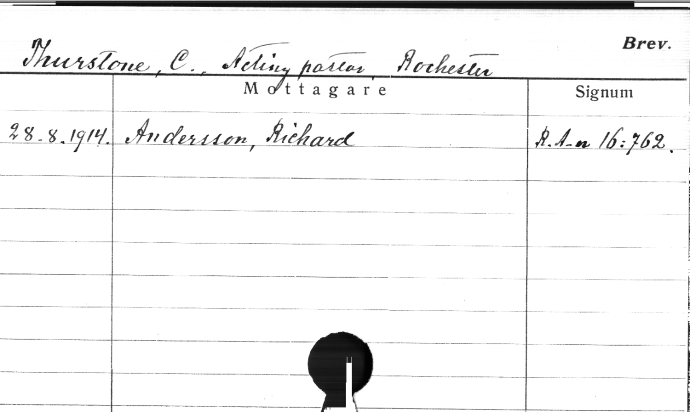 Brev.
Thurstone, C., Acting pastor, Rochester
Mottagare Signum
28.8.1914. Andersson, Richard R.A-n 16:762.